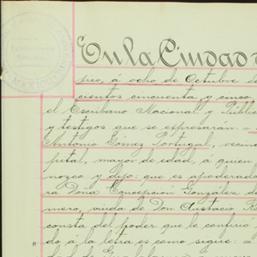 En la Ciudad d
pec, á ocho de Octubre de
cientos cincuenta y cinco
el Escribano Nacional y Públic
y testigos que se expresarán =
Antonio Gomez Portugal, vecin
pital, mayor de edad, á quien
nozco y dijo: que es apoderad
ra Doña Concepcion Gonzalez d
mero, viuda de Don Eustacio R
consta del poder que le confirió y
do á la letra es como sigue: =